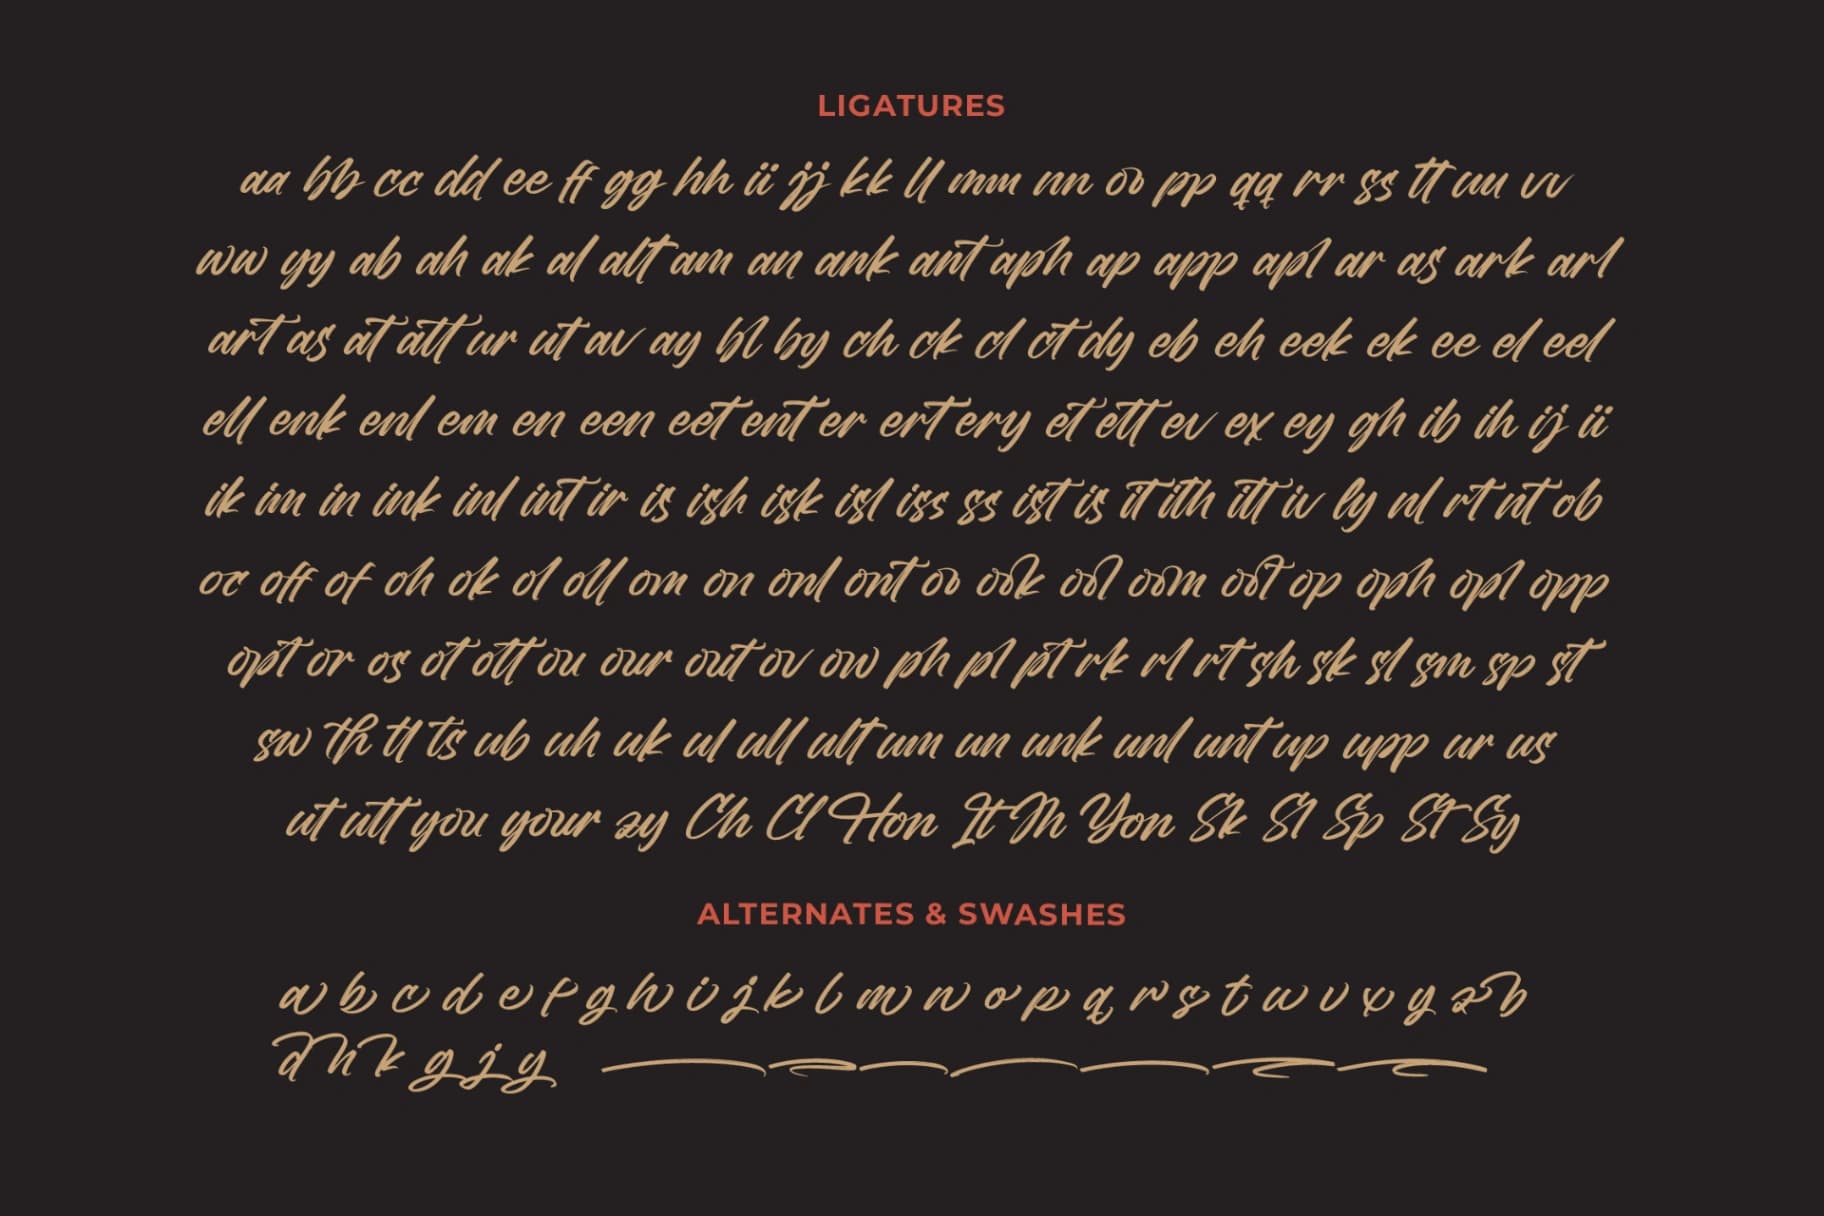 LIGATURES
aa bb cc dd ee ff gg hh ii jj kk ll mm nn oo pp qq rr ss tt uu vv
ww yy ab ah ak al alt am an ank ant aph ap app apl ar as ark arl
art as at att ur ut av ay bl by ch ck cl ct dy eb eh eek ek ee el eel
ell enk enl em en een eet ent er ert ery et ett ev ex ey gh ib ih ij ii
ik im in ink inl int ir is ish isk isl iss ss ist is it ith itt iv ly nl rt nt ob
oc off of oh ok ol oll om on onl ont oo ook ool oom oot op oph opl opp
opt or os ot ott ou our out ov ow ph pl pt rk rl rt sh sk sl sm sp st
sw th tl ts ub uh uk ul ull ult um un unk unl unt up upp ur us
ut utt you your zy Ch Cl Hon It M Yon Sk Sl Sp St Sy
ALTERNATES & SWASHES
a b c d e f g h i j k l m n o p q r s t w v x y z b
d h k g j y